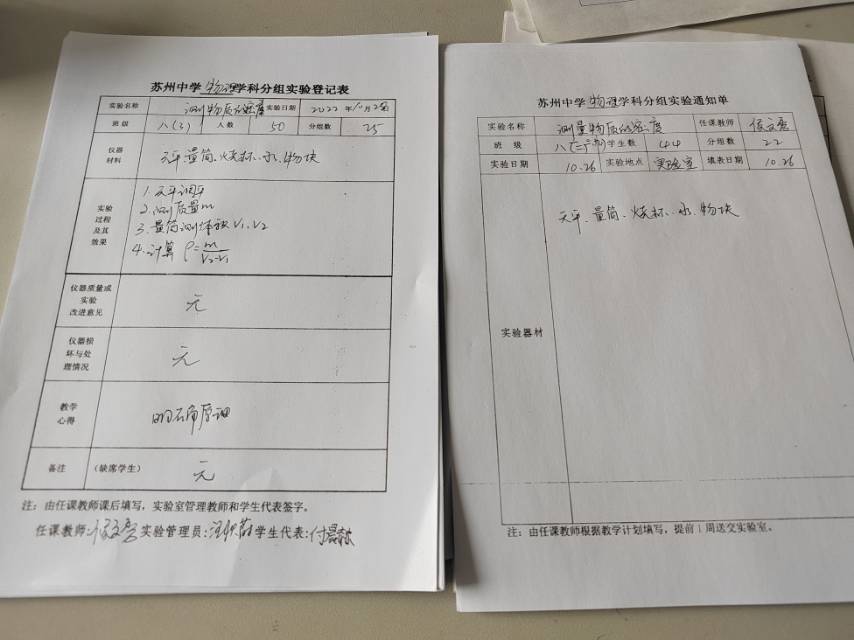 苏州中学 物理 学科分组实验登记表
实验名称 测物质的密度 实验日期 2022 年10月28
班级 八(3) 人数 50 分组数 25
仪器
材料
天平.量筒.烧杯.水.物块
实验
过程
及其
效果
1.天平调平
2.测质量m
3.量筒测体积V₁、V₂
4.计算 ρ=m/(V₂-V₁)
仪器质量或
实验
改进意见
无
仪器损
坏与处
理情况
无
教学
心得
明确原理
备注 (缺席学生) 无
注:由任课教师课后填写,实验室管理教师和学生代表签字。
任课教师: 实验管理员: 学生代表:
苏州中学 物理 学科分组实验通知单
实验名称 测量物质的密度 任课教师
班级 学生数 44 分组数 22
实验日期 10.26 实验地点 实验室 填表日期 10.26
实验器材
天平、量筒、烧杯、水、物块
注:由任课教师根据教学计划填写,提前1周送交实验室。